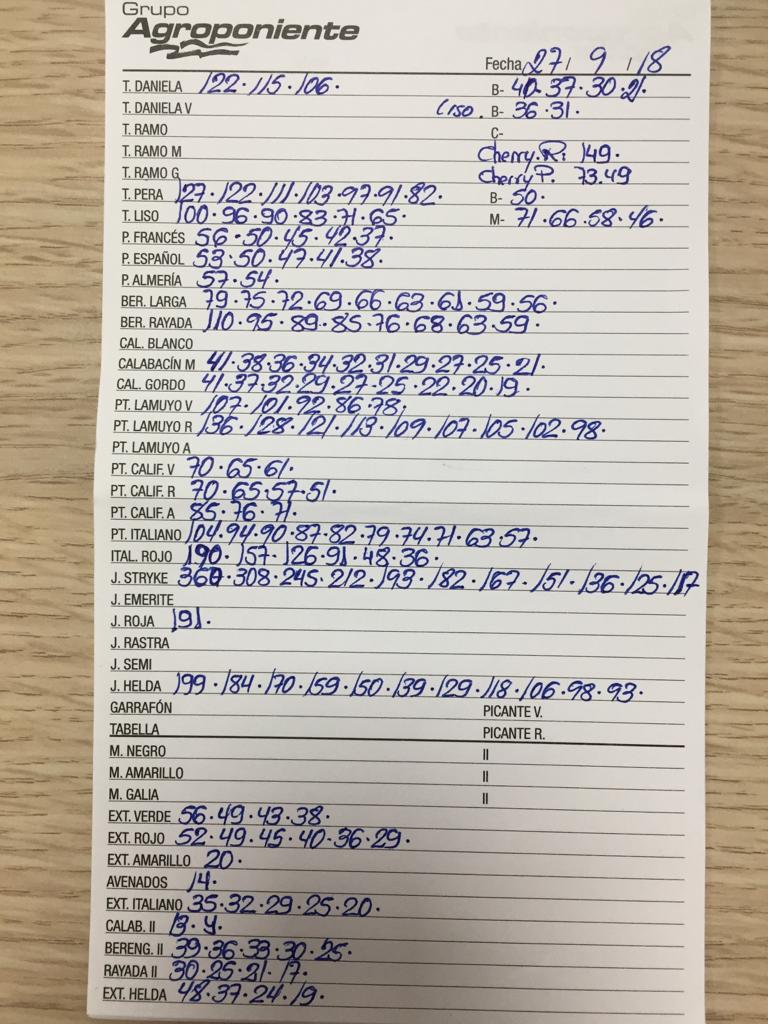 Grupo
Agroponiente
Fecha 27 / 9 / 18
T. DANIELA 122 · 115 · 106 · B- 40 · 37 · 30 · 21 ·
T. DANELA V Liso . B- 36 · 31 ·
T. RAMO C-
T. RAMO M Cherry. R: 149 ·
T. RAMO G Cherry P. 73.49
T. PERA 127 · 122 · 111 · 103 · 97 · 91 · 82 · B- 50 ·
T. LISO 100 · 96 · 90 · 83 · 71 · 65 · M- 71 · 66 · 58 · 46 ·
P. FRANCÉS 56 · 50 · 45 · 42 · 37 ·
P. ESPAÑOL 53 · 50 · 47 · 41 · 38 ·
P. ALMERÍA 57 · 54 ·
BER. LARGA 79 · 75 · 72 · 69 · 66 · 63 · 61 · 59 · 56 ·
BER. RAYADA 110 · 95 · 89 · 85 · 76 · 68 · 63 · 59 ·
CAL. BLANCO
CALABACÍN M 41 · 38 · 36 · 34 · 32 · 31 · 29 · 27 · 25 · 21 ·
CAL. GORDO 41 · 37 · 32 · 29 · 27 · 25 · 22 · 20 · 19 ·
PT. LAMUYO V 107 · 101 · 92 · 86 · 78 ·
PT. LAMUYO R 136 · 128 · 121 · 113 · 109 · 107 · 105 · 102 · 98 ·
PT. LAMUYO A
PT. CALIF. V 70 · 65 · 61 ·
PT. CALIF. R 70 · 65 · 57 · 51 ·
PT. CALIF. A 85 · 76 · 71 ·
PT. ITALIANO 104 · 94 · 90 · 87 · 82 · 79 · 74 · 71 · 63 · 57 ·
ITAL. ROJO 190 · 157 · 126 · 91 · 48 · 36 ·
J. STRYKE 360 · 308 · 245 · 212 · 193 · 182 · 167 · 151 · 136 · 125 · 117
J. EMERITE
J. ROJA 191 ·
J. RASTRA
J. SEMI
J. HELDA 199 · 184 · 170 · 159 · 150 · 139 · 129 · 118 · 106 · 98 · 93 ·
GARRAFÓN PICANTE V.
TABELLA PICANTE R.
M. NEGRO II
M. AMARILLO II
M. GALIA II
EXT. VERDE 56 · 49 · 43 · 38 ·
EXT. ROJO 52 · 49 · 45 · 40 · 36 · 29 ·
EXT. AMARILLO 20 ·
AVENADOS 14 ·
EXT. ITALIANO 35 · 32 · 29 · 25 · 20 ·
CALAB. II 13 ·
BERENG. II 39 · 36 · 33 · 30 · 25 ·
RAYADA II 30 · 25 · 21 · 17 ·
EXT. HELDA 48 · 37 · 24 · 19 ·